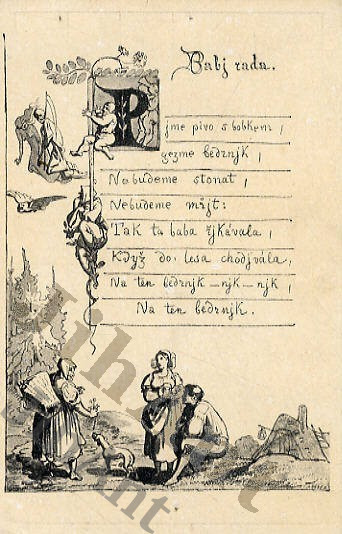 Babj rada.
Pjme pivo s bobkem,
gezme bedrnjk,
Nebudeme stonat,
Nebudeme mřjt:
Tak ta baba řjkávala,
Když do lesa chodjvála,
Na ten bedrnjk–njk–njk,
Na ten bedrnjk.